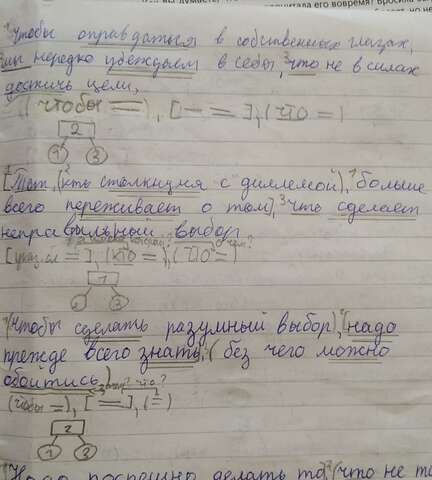 читала его вовремя? Бросила бы
¹Чтобы оправдаться в собственных глазах,
²мы нередко убеждаем в себя, ³что не в силах
достичь цели,
(чтобы =), [— =], (что =)
2
1 3
¹[Тот, (²кто столкнулся с диллемой), ¹больше
всего переживает о том], ³что сделает
неправильный выбор
[указ. сл =], (кто =), (что =)
1
2 3
¹(Чтобы сделать разумный выбор), ²[надо
прежде всего знать, ³(без чего можно
обойтись)
(чтобы =), [=], (=)
2
1 3
Надо поспешно делать то, ²(что не